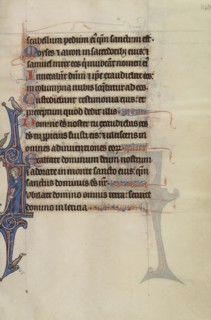 scabellum pedum eius qm̄ sanctum est.
Moyses ⁊ aaron in sacerdotib; eius: ⁊
samuel inter eos qui inuocant nomen eius
Inuocabant dnm̄ ⁊ ipse exaudiebat eos:
in columpna nubis loquebatur ad eos.
Custodiebant testimonia eius: et
preceptum quod dedit illis
Domine ds̄ noster tu exaudiebas eos:
ds̄ tu propicius fuisti eis: ⁊ ulciscens in
omnes adinuentiones eorum
Exaltate dominum deum nostrum
⁊ adorate in monte sancto eius: qm̄
sanctus dominus ds̄ nr̄
Iubilate domino omnis terra: seruite
domino in leticia